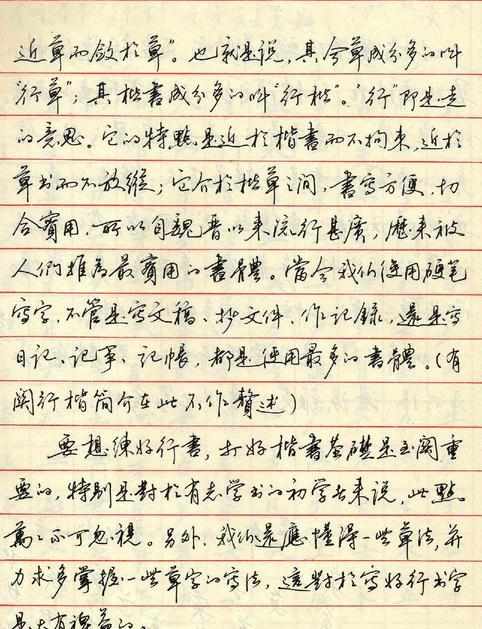 近草而敛於草”。也就是说，其含草成分多的叫
“行草”；其楷書成分多的叫“行楷”。“行”即是走
的意思。它的特點是近於楷書而不拘束，近於
草书而不放縱；它介於楷草之间，書寫方便，切
合實用，所以自魏晋以来流行甚廣，歷来被
人們推為最實用的書體。當今我们使用硬笔
寫字，不管是寫文稿、抄文件、作記録，還是寫
日记、记事、记帳，都是使用最多的書體。(有
関行楷简介在此不作贅述)
要想練好行書，打好楷書基礎是至関重
要的，特别是對於有志学书的初学者来説，此點
萬萬不可忽視。另外，我们還應懂得一些草法，并
力求多掌握一些草字的寫法，這對於寫好行书字
是大有裨益的。